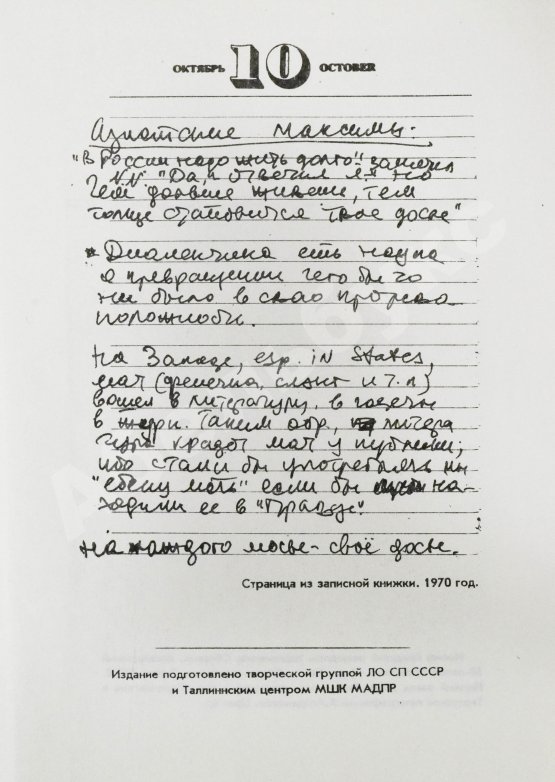 ОКТЯБРЬ 10 OCTOBER
Азиатские максимы:
"В России надо жить долго" заметил
N.N. "Да, ответил я." но
чем дольше живешь, тем
толще становится твое досье"
* Диалектика есть наука
о превращении чего бы то
ни было в свою противо
положность.
На Западе, esp. in States,
мат (феня, сленг и т.п)
вошел в литературу, в газеты
в Таким обр., литера
тура крадет мат у публики;
ибо стали бы употреблять мы
"ебену мать" если бы на-
ходили ее в "Правде".
На каждого мосье - своё досье.
Страница из записной книжки. 1970 год.
Издание подготовлено творческой группой ЛО СП СССР
и Таллиннским центром МШК МАДПР